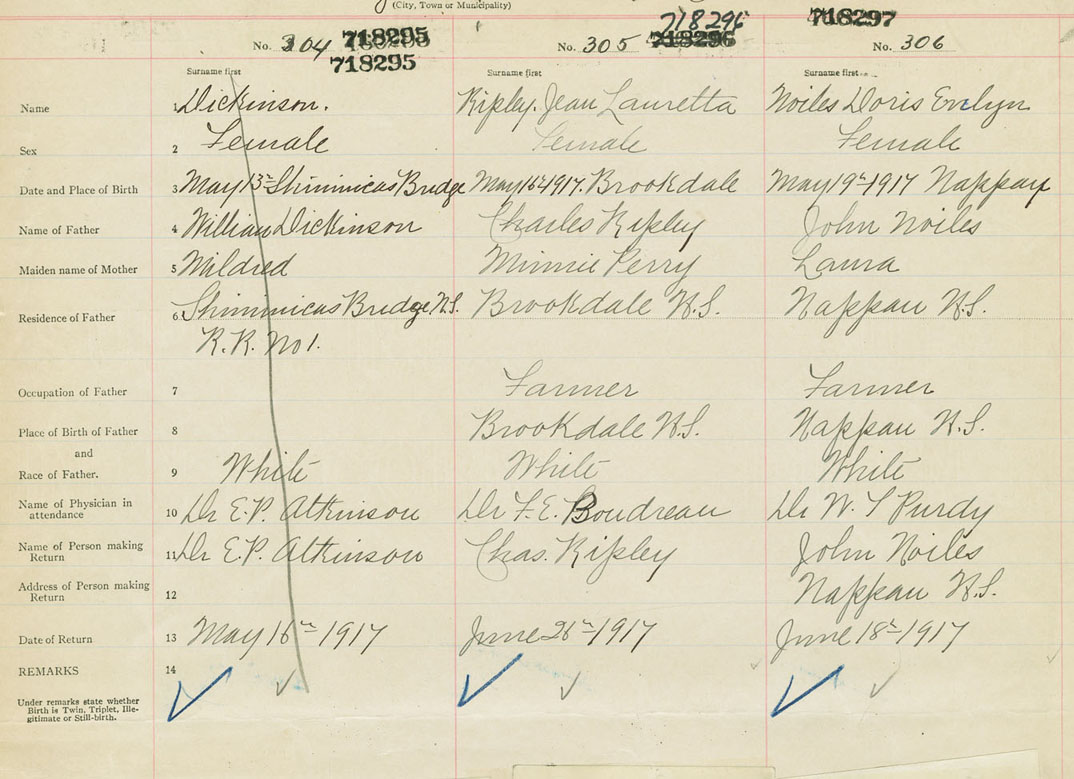 (City, Town or Municipality)
No. 304 718295 718295
No. 305 718296 718296
No. 306 718297
Surname first Surname first Surname first
Name 1 Dickinson. Ripley. Jean Lauretta Noiles Doris Evelyn
Sex 2 Female Female Female
Date and Place of Birth 3 May 13th Shinimicas Bridge May 16th 1917. Brookdale May 19th 1917 Nappan
Name of Father 4 William Dickinson Charles Ripley John Noiles
Maiden name of Mother 5 Mildred Minnie Perry Laura
Residence of Father 6 Shinimicas Bridge N.S. Brookdale N.S. Nappan N.S.
R.R. No 1.
Occupation of Father 7 Farmer Farmer
Place of Birth of Father 8 Brookdale N.S. Nappan N.S.
and
Race of Father. 9 White White White
Name of Physician in attendance 10 Dr E.P. Atkinson Dr F.E. Boudreau Dr W. T Purdy
Name of Person making Return 11 Dr E.P. Atkinson Chas. Ripley John Noiles
Address of Person making Return 12 Nappan N.S.
Date of Return 13 May 16th 1917 June 26th 1917 June 18th 1917
REMARKS 14
Under remarks state whether
Birth is Twin, Triplet, Ille-
gitimate or Still-birth.